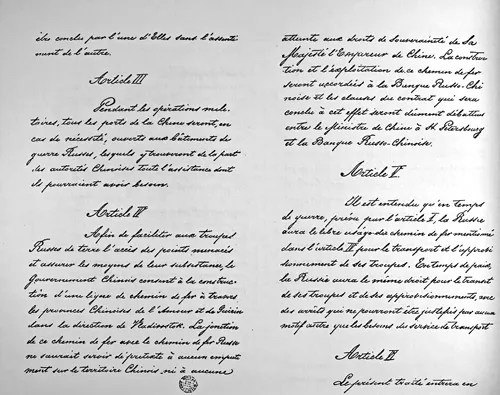 être conclu par l'une d'Elles sans l'assenti
ment de l'autre.
Article III
Pendant les opérations mili-
taires, tous les ports de la Chine seront, en
cas de nécessité, ouverts aux bâtiments de
guerre Russes, lesquels y trouveront de la part
des autorités Chinoises toute l'assistance dont
ils pourraient avoir besoin.
Article IV
Afin de faciliter aux troupes
Russes de terre l'accès des points menacés
et assurer les moyens de leur subsistance, le
Gouvernement Chinois consent à la construc-
tion d'une ligne de chemin de fer à travers
les provinces Chinoises de l'Amour et de Guirin
dans la direction de Vladivostok. La jonction
de ce chemin de fer avec le chemin de fer Russe
ne saurait servir de prétexte à aucun empiète
ment sur le territoire Chinois, ni à aucune
atteinte aux droits de souveraineté de Sa
Majesté l'Empereur de Chine. La construc
tion et l'exploitation de ce chemin de fer
seront accordées à la Banque Russo-Chi
noise et les clauses du contrat qui sera
conclu à cet effet seront dûment débattues
entre le Ministre de Chine à St. Pétersbourg
et la Banque Russo-Chinoise.
Article V
Il est entendu qu'en temps
de guerre, prévu par l'article I, la Russie
aura le libre usage du chemin de fer mentionné
dans l'article IV pour le transport et l'approvi
sionnement de ses troupes. En temps de paix,
la Russie aura le même droit pour le transit
de ses troupes et de ses approvisionnements, avec
des arrêts qui ne pourront être justifiés par aucun
motif autre que les besoins du service de transport
Article VI
Le présent traité entrera en